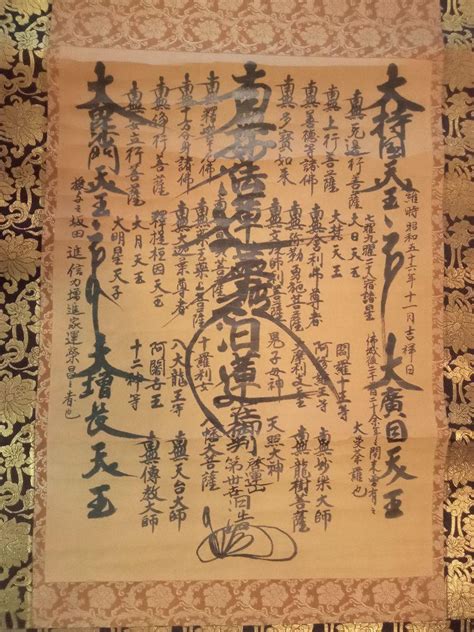 大持国天王
維時昭和五十六年十一月吉祥日
大廣目天王
佛滅後二千二百二十余年之間未曾有之
大曼荼羅也
南無無邊行菩薩
南無上行菩薩
南無善徳等諸佛
南無多寶如来
南無妙法蓮華経
日蓮
南無釈迦牟尼佛
南無十方分身諸佛
南無浄行菩薩
南無安立行菩薩
七曜九曜二十八宿諸星
大日天王
大梵天王
南無舎利弗尊者
南無弥勒菩薩
南無文殊師利菩薩
南無薬王菩薩
南無大迦葉尊者
釈提桓因天王
大月天王
大明星天子
閻羅十王等
阿修羅王等
鬼子母神
十羅刹女
八大龍王等
阿闍世王
十二神等
南無妙楽大師
南無龍樹菩薩
天照大神
八幡大菩薩
南無天台大師
南無傳教大師
大毘沙門天王
大増長天王
授与之坂田進